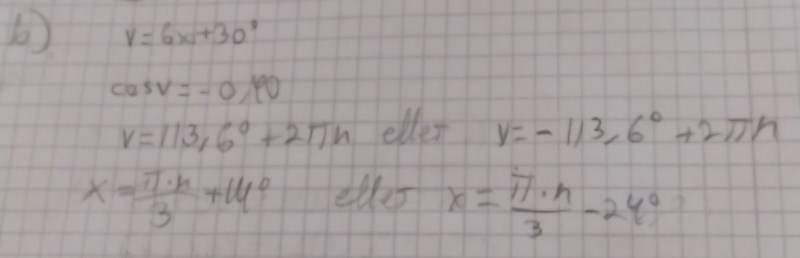 b) v=6x+30°
cosv=-0,40
v=113,6°+2πn eller v=-113,6°+2πn
x=π·n/3+14° eller x=π·n/3-24°